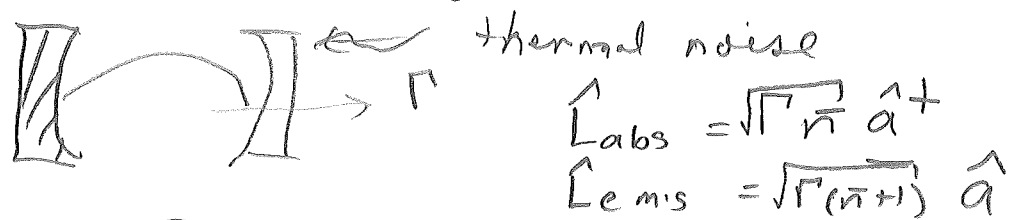 thermal noise
Γ
L̂abs = √Γn̄ â†
L̂emis = √Γ(n̄+1) â